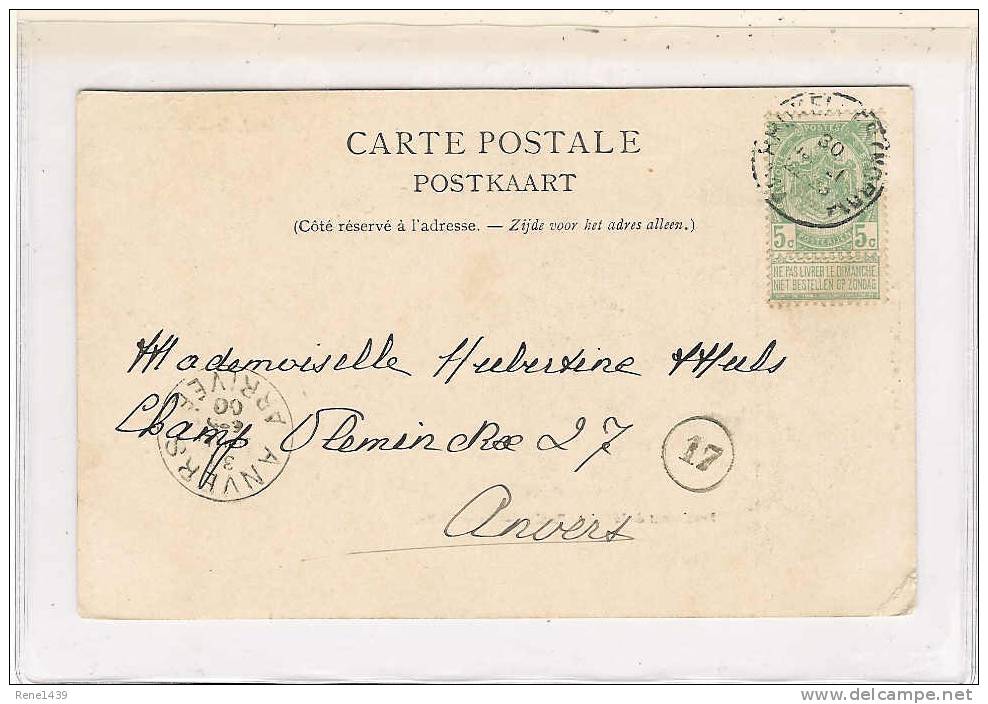 CARTE POSTALE
POSTKAART
(Côté réservé à l'adresse. — Zijde voor het adres alleen.)
POSTES
5c POSTERIJEN 5c
NE PAS LIVRER LE DIMANCHE
NIET BESTELLEN OP ZONDAG
Mademoiselle Hubertine
Champ Vleminckx 27
Anvers
17
ANVERS
ARRIVE
Rene1439
delcampe.net